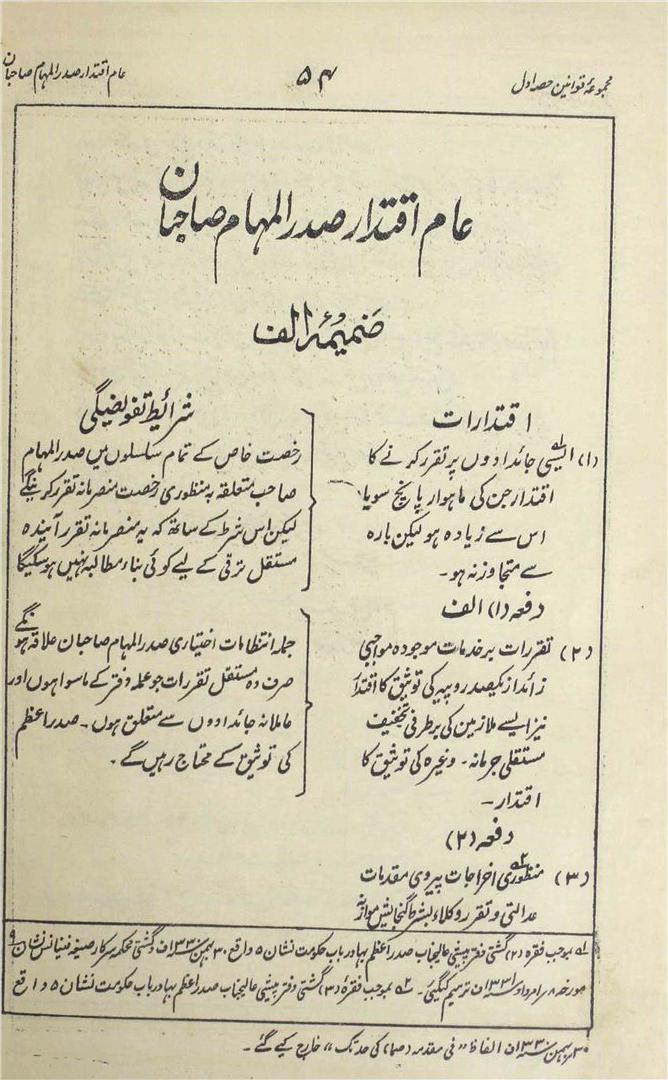 مجموعۂ قوانین حصہ اول
۵۴
عام اقتدار صدر المہام صاحبان
عام اقتدار صدر المہام صاحبان
ضمیمۂ الف
اقتدارات
(۱) ایسی جائدادوں پر تقرر کرنے کا
اقتدار جن کی ماہوار پانچ سو یا
اس سے زیادہ ہو لیکن بارہ
سے متجاوز نہ ہو۔
دفعہ (۱) الف
(۲) تقررات بر خدمات موجودہ مواجبی
زائد از یکصد روپیہ کی توثیق کا اقتدار
نیز ایسے ملازمین کی برطرفی تخفیف
مستقلی جرمانہ۔ وغیرہ کی توثیق کا
اقتدار۔
دفعہ (۲)
(۳) منظوری اخراجات پیروی مقدمات
عدالتی و تقرر وکلاء بشرط گنجایش موازنہ
شرائط تفویضگی
رخصت خاص کے تمام سلسلوں میں صدر المہام
صاحب متعلقہ بہ منظوری رخصت منصرمانہ تقرر کرینگے
لیکن اس شرط کے ساتھ کہ یہ منصرمانہ تقرر آیندہ
مستقل ترقی کے لیے کوئی بناء مطالبہ نہیں ہو سکیگا
جملہ انتظامات اختیاری صدر المہام صاحبان علاقہ ہونگے
صرف وہ مستقل تقررات جو عملہ دفتر کے ماسوا ہوں اور
عاملانہ جائدادوں سے متعلق ہوں۔ صدر اعظم
کی توثیق کے محتاج رہیں گے۔
لہ بموجب فقرہ (۲) گشتی دفتر پیشی عالیجناب صدر اعظم بہادر باب حکومت نشان ۵ واقع ۳۰ بہمن سنہ ۱۳۳۰ف و گشتی محکمہ سرکار صیغہ فینانس نشان ۹
مورخہ ۸ امرداد سنہ ۱۳۳۱ف ترمیم کیگئی۔ ۲ہ بموجب فقرۂ (۳) گشتی دفتر پیشی عالیجناب صدر اعظم بہادر باب حکومت نشان ۵ واقع
۳۰ بہمن سنہ ۱۳۳۰ف الفاظ "فی مقدمہ (صما) کی حد تک" خارج کیے گئے۔